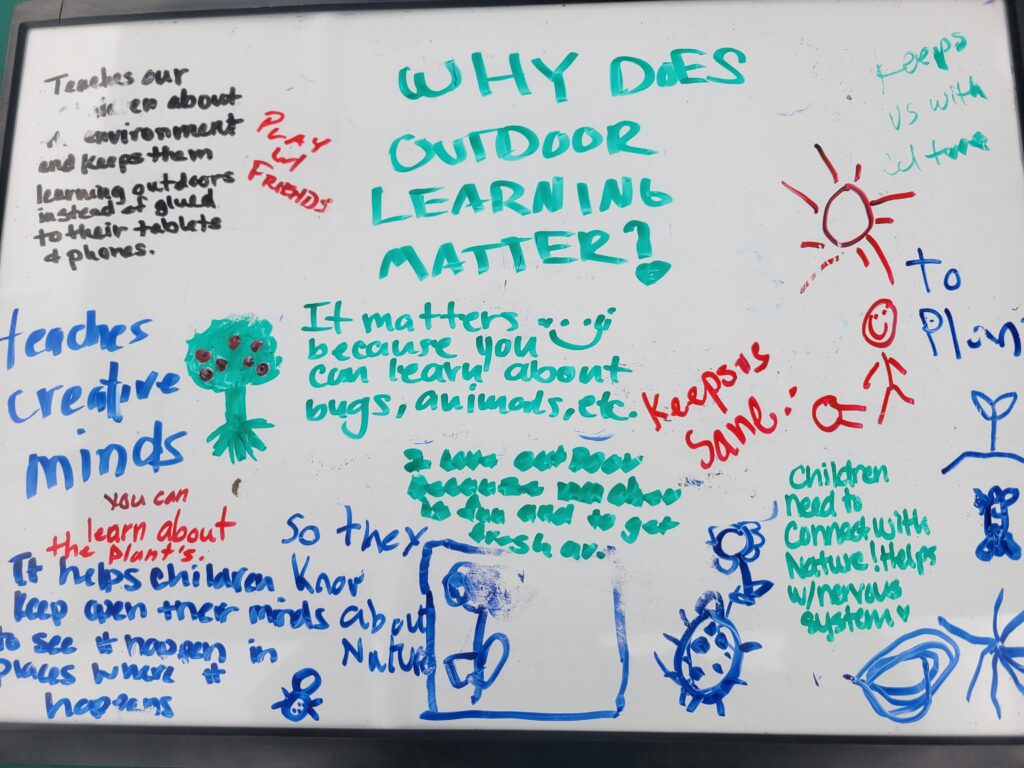 WHY DOES
OUTDOOR
LEARNING
MATTER?
Teaches our
about
environment
and keeps them
learning outdoors
instead of glued
to their tablets
& phones.
PLAY
W/
FRIENDS
Keeps
us with
to
Plan
teaches
creative
minds
It matters
because you
can learn about
bugs, animals, etc.
Keeps us
Sane!
I love outdoor
because
is fun and to get
fresh air.
Children
need to
Connect with
Nature! Helps
w/nervous
system
you can
learn about
the Plant's.
so they
Know
about
Nature
It helps children
keep open their minds
to see it happen in
places where it
happens